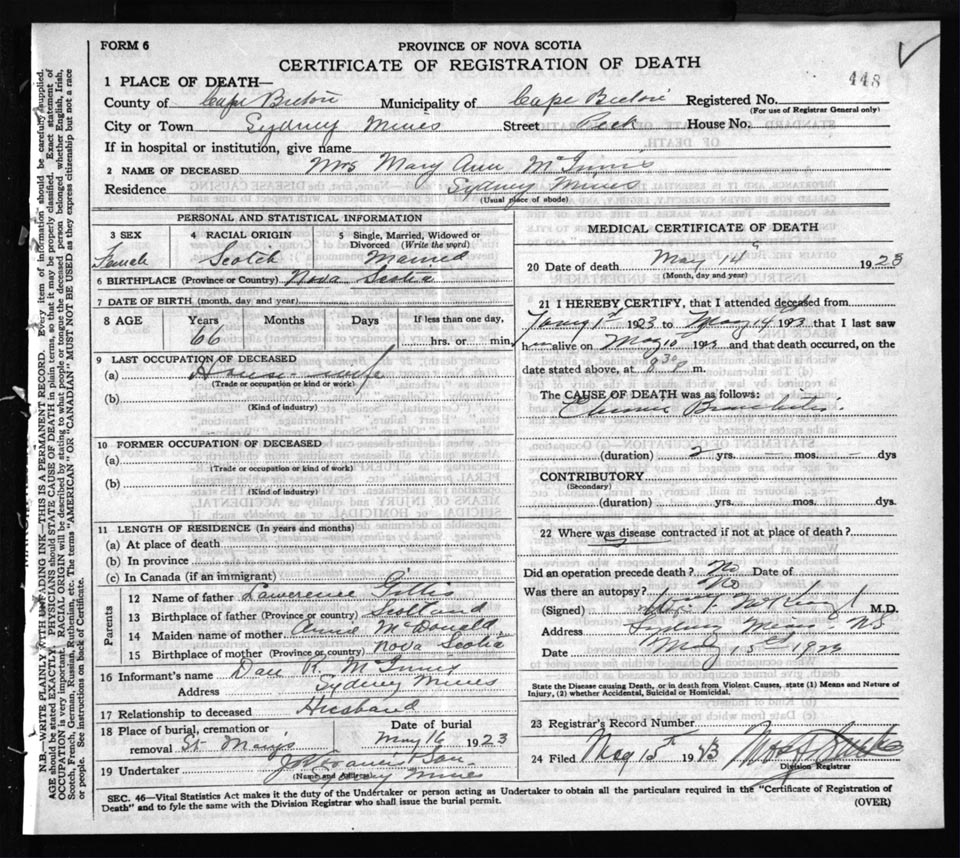 FORM 6
PROVINCE OF NOVA SCOTIA
CERTIFICATE OF REGISTRATION OF DEATH
448
1 PLACE OF DEATH—
County of Cape Breton Municipality of Cape Breton Registered No.
(For use of Registrar General only)
City or Town Sydney Mines Street Peck House No.
If in hospital or institution, give name
2 NAME OF DECEASED Mrs Mary Ann McInnis
Residence Sydney Mines
(Usual place of abode)
PERSONAL AND STATISTICAL INFORMATION
3 SEX Female
4 RACIAL ORIGIN Scotch
5 Single, Married, Widowed or Divorced (Write the word) Married
6 BIRTHPLACE (Province or Country) Nova Scotia
7 DATE OF BIRTH (month, day and year)
8 AGE Years 66 Months Days If less than one day, hrs. or min.
9 LAST OCCUPATION OF DECEASED
(a) House-wife
(Trade or occupation or kind of work)
(b)
(Kind of industry)
10 FORMER OCCUPATION OF DECEASED
(a)
(Trade or occupation or kind of work)
(b)
(Kind of industry)
11 LENGTH OF RESIDENCE (In years and months)
(a) At place of death
(b) In province
(c) In Canada (if an immigrant)
Parents
12 Name of father Lawrence Gillis
13 Birthplace of father (Province or country) Scotland
14 Maiden name of mother Anne McDonald
15 Birthplace of mother (Province or country) Nova Scotia
16 Informant's name Dan R. McInnis
Address Sydney Mines
17 Relationship to deceased Husband
18 Place of burial, cremation or removal St Mary's
Date of burial May 16 1923
19 Undertaker Son
(Name and Address) Sydney Mines
MEDICAL CERTIFICATE OF DEATH
20 Date of death May 14 1923
(Month, day and year)
21 I HEREBY CERTIFY, that I attended deceased from
1st 1923 to May 14 1923 that I last saw
h alive on May 10 1923 and that death occurred, on the
date stated above, at 8 30 P m.
The CAUSE OF DEATH was as follows:
Chronic Bronchitis
(duration) 2 yrs. – mos. – dys
CONTRIBUTORY
(Secondary)
(duration) yrs. mos. dys.
22 Where was disease contracted if not at place of death?
Did an operation precede death? No Date of
Was there an autopsy? No
(Signed) M.D.
Address Sydney Mines N.S
Date May 15 1923
State the Disease causing Death, or in death from Violent Causes, state (1) Means and Nature of Injury, (2) whether Accidental, Suicidal or Homicidal.
23 Registrar's Record Number
24 Filed May 15th 1923
Division Registrar
SEC. 46—Vital Statistics Act makes it the duty of the Undertaker or person acting as Undertaker to obtain all the particulars required in the "Certificate of Registration of
Death" and to fyle the same with the Division Registrar who shall issue the burial permit.
(OVER)
N.B.—WRITE PLAINLY, WITH UNFADING INK—THIS IS A PERMANENT RECORD. Every item of information should be carefully supplied.
AGE should be stated EXACTLY. PHYSICIANS should STATE CAUSE OF DEATH in plain terms, so that it may be properly classified. Exact statement of
OCCUPATION is very important. RACIAL ORIGIN will be described by stating to what people or tongue the deceased person belonged whether English, Irish,
Scotch, French, German, Russian, Ruthenian, etc. The terms "AMERICAN" OR "CANADIAN" MUST NOT BE USED as they express citizenship but not a race
or people. See instructions on back of Certificate.